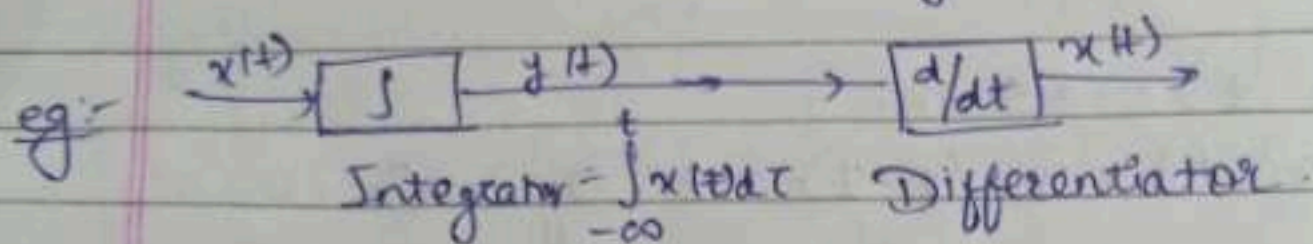 eg:- x(t) ∫ y(t) d/dt x(t)
Integrator = ∫ t -∞ x(t)dτ Differentiator